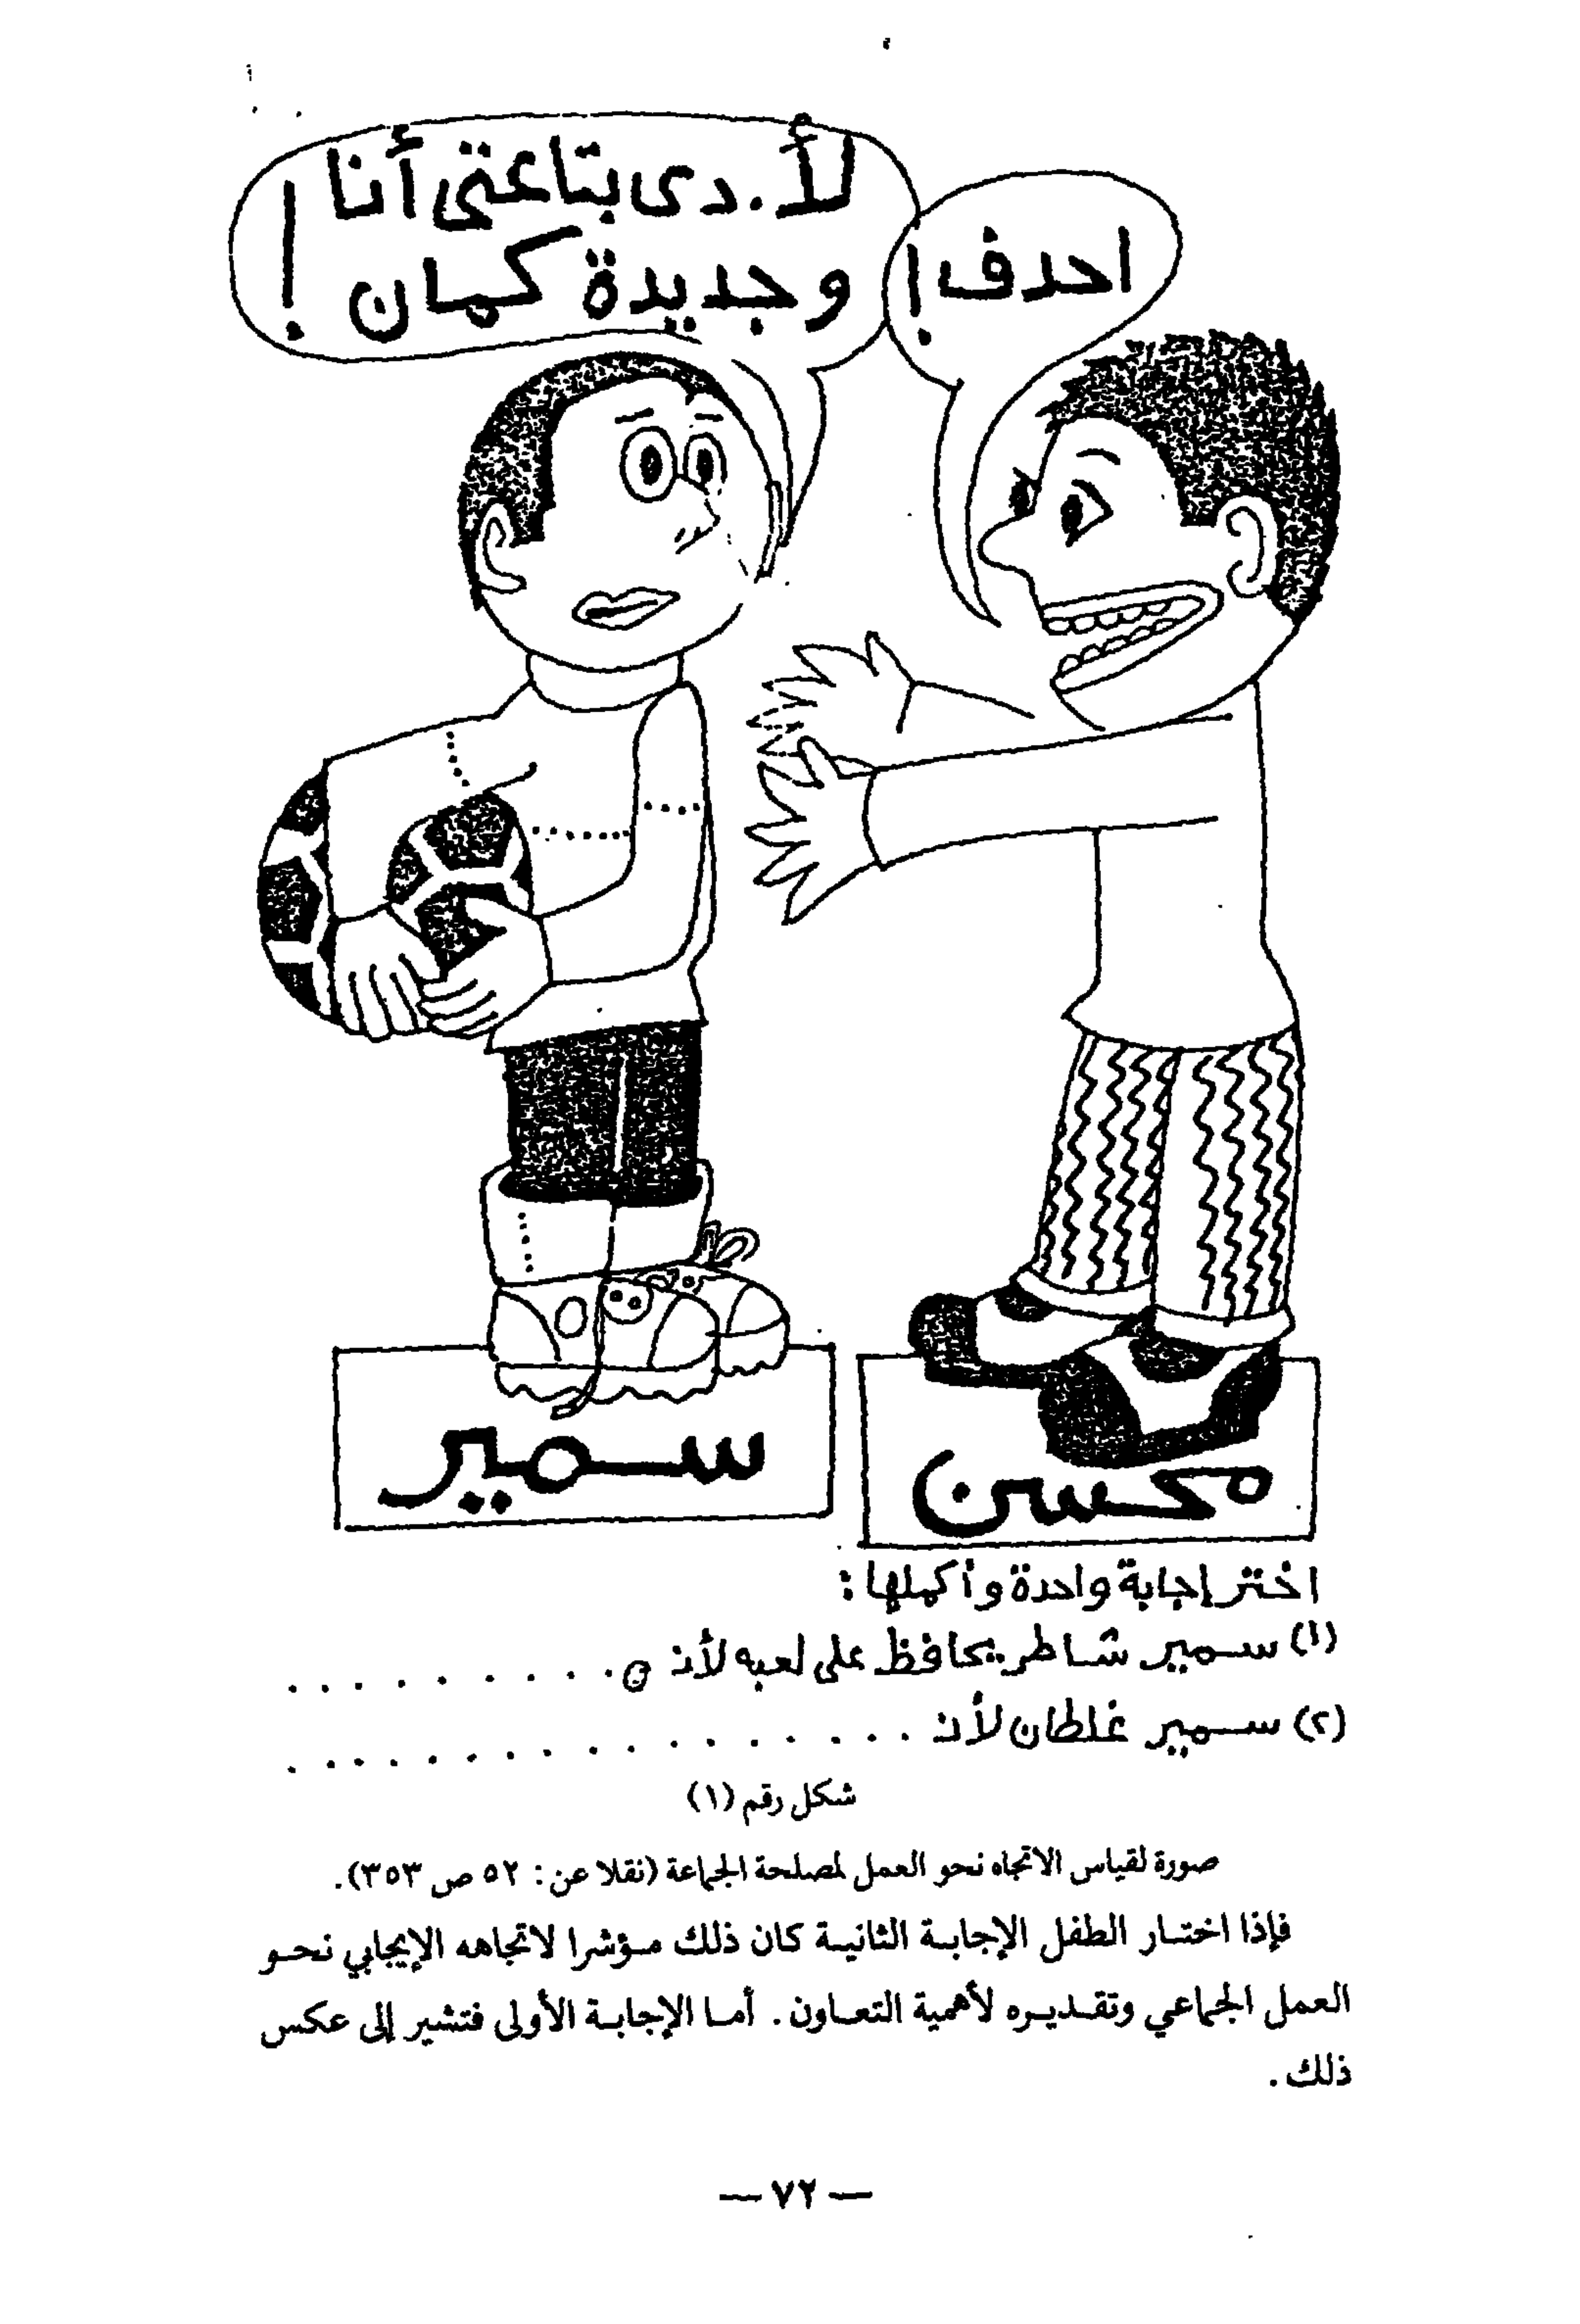 احدف!
لأ. دى بتاعتى أنا
وجديدة كمان!
محسن
سمير
اختر إجابة واحدة وأكملها:
(١) سمير شاطر يحافظ على لعبه لأنه . . . . . . . . .
(٢) سمير غلطان لأنه . . . . . . . . . . . . . . . .
شكل رقم (١)
صورة لقياس الاتجاه نحو العمل لمصلحة الجماعة (نقلا عن: ٥٢ ص ٣٥٣).
فإذا اختار الطفل الإجابة الثانية كان ذلك مؤشرا لاتجاهه الإيجابي نحو
العمل الجماعي وتقديره لأهمية التعاون. أما الإجابة الأولى فتشير إلى عكس
ذلك.
— ٧٢ —